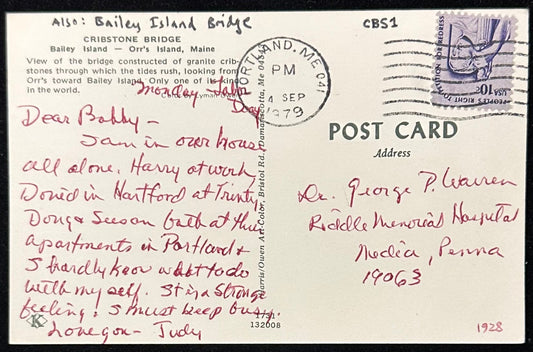 Also: Bailey Island Bridge
CBS1
CRIBSTONE BRIDGE
Bailey Island — Orr's Island, Maine
View of the bridge constructed of granite crib-
stones through which the tides rush, looking from
Orr's toward Bailey Island. Only one of its kind
in the world.
Lyman Owen
Monday Labor
Day
Dear Bobby –
I am in our house
all alone. Harry at work
David in Hartford at Trinity
Doug & Susan both at their
apartments in Portland &
I hardly know what to do
with my self. It is a strange
feeling. I must keep busy.
Love you – Judy
K
PORTLAND, ME 041
PM
4 SEP
1979
PEOPLE'S RIGHT TO PETITION FOR REDRESS
USA 10c
POST CARD
Address
Dr. George P. Warren
Riddle Memorial Hospital
Media, Penna
19063
Harris/Owen Art-Color, Bristol Rd., Damariscotta, Me 04543
132008
1928